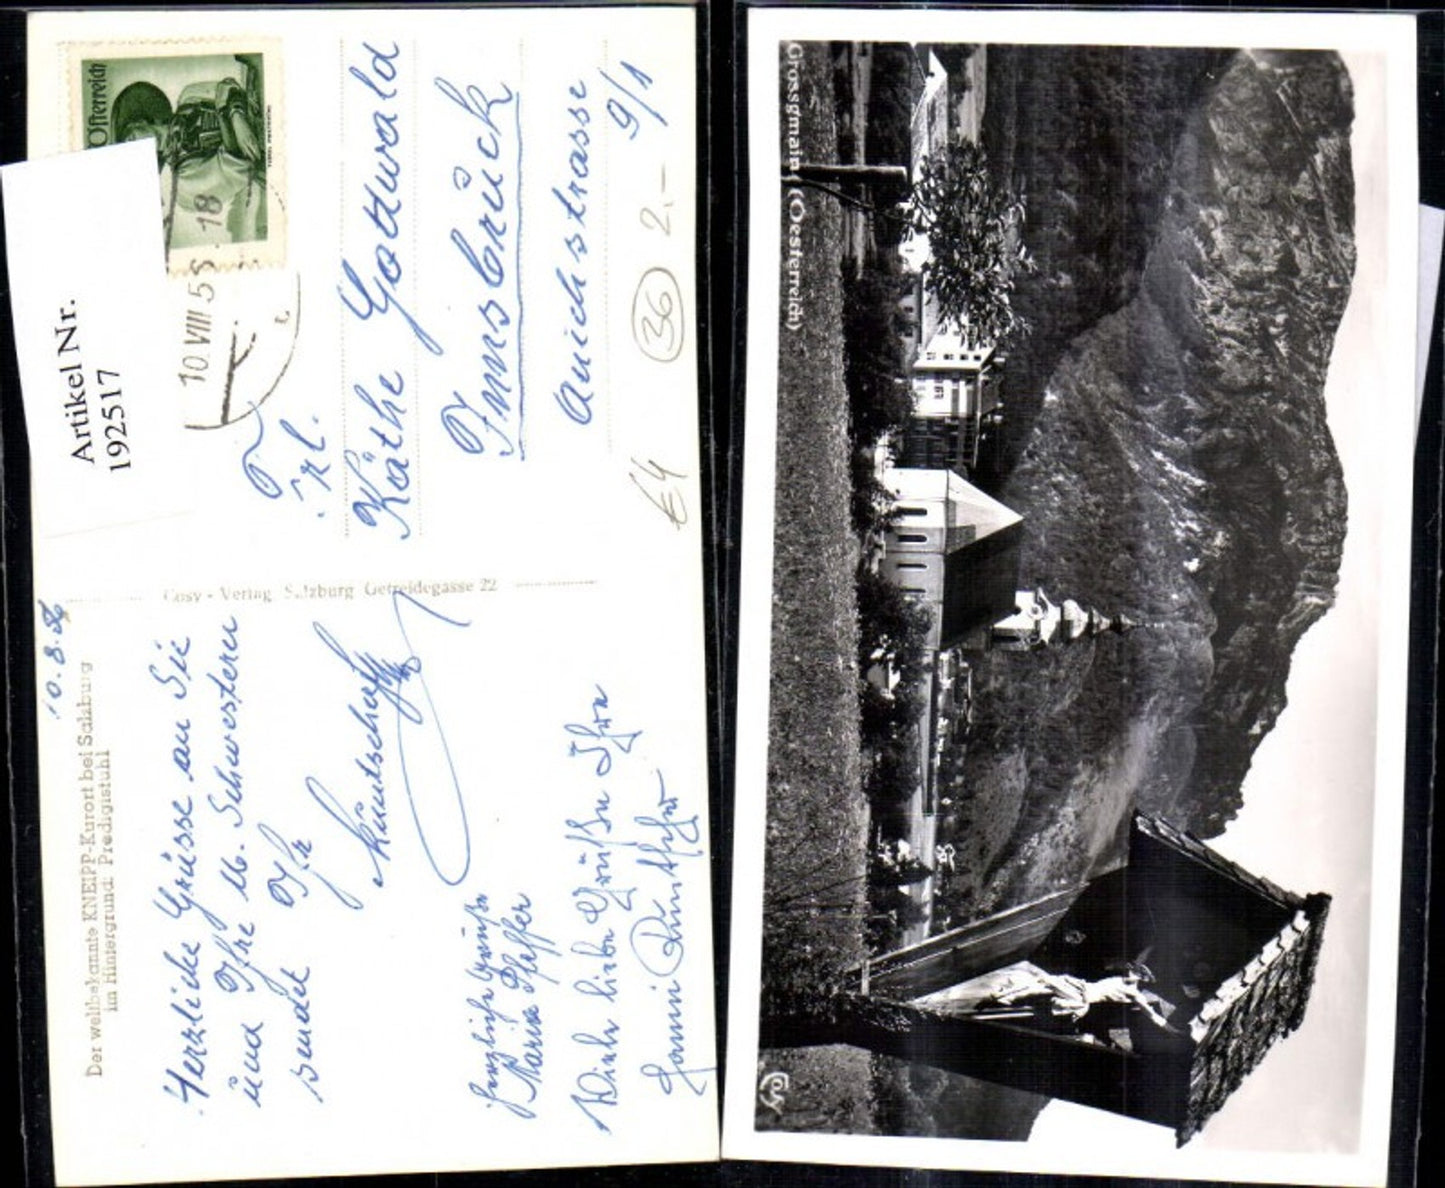 Österreich
10. VIII 5
18
Artikel Nr.
192517
Frl.
Käthe Gottwald
Innsbruck
Anichstrasse
9/1
2.-
36
€4
Cosy - Verlag Salzburg Getreidegasse 22
10.8.
Der weltbekannte KNEIPP-Kurort bei Salzburg
im Hintergrund: Predigtstuhl
Herzliche Grüsse an Sie
und Ihre lb. Schwestern
sendet Ihr
Herzliche Grüße
Marie Pfeffer
Viele liebe Grüße Ihre
Grossgmain (Oesterreich)
Cosy